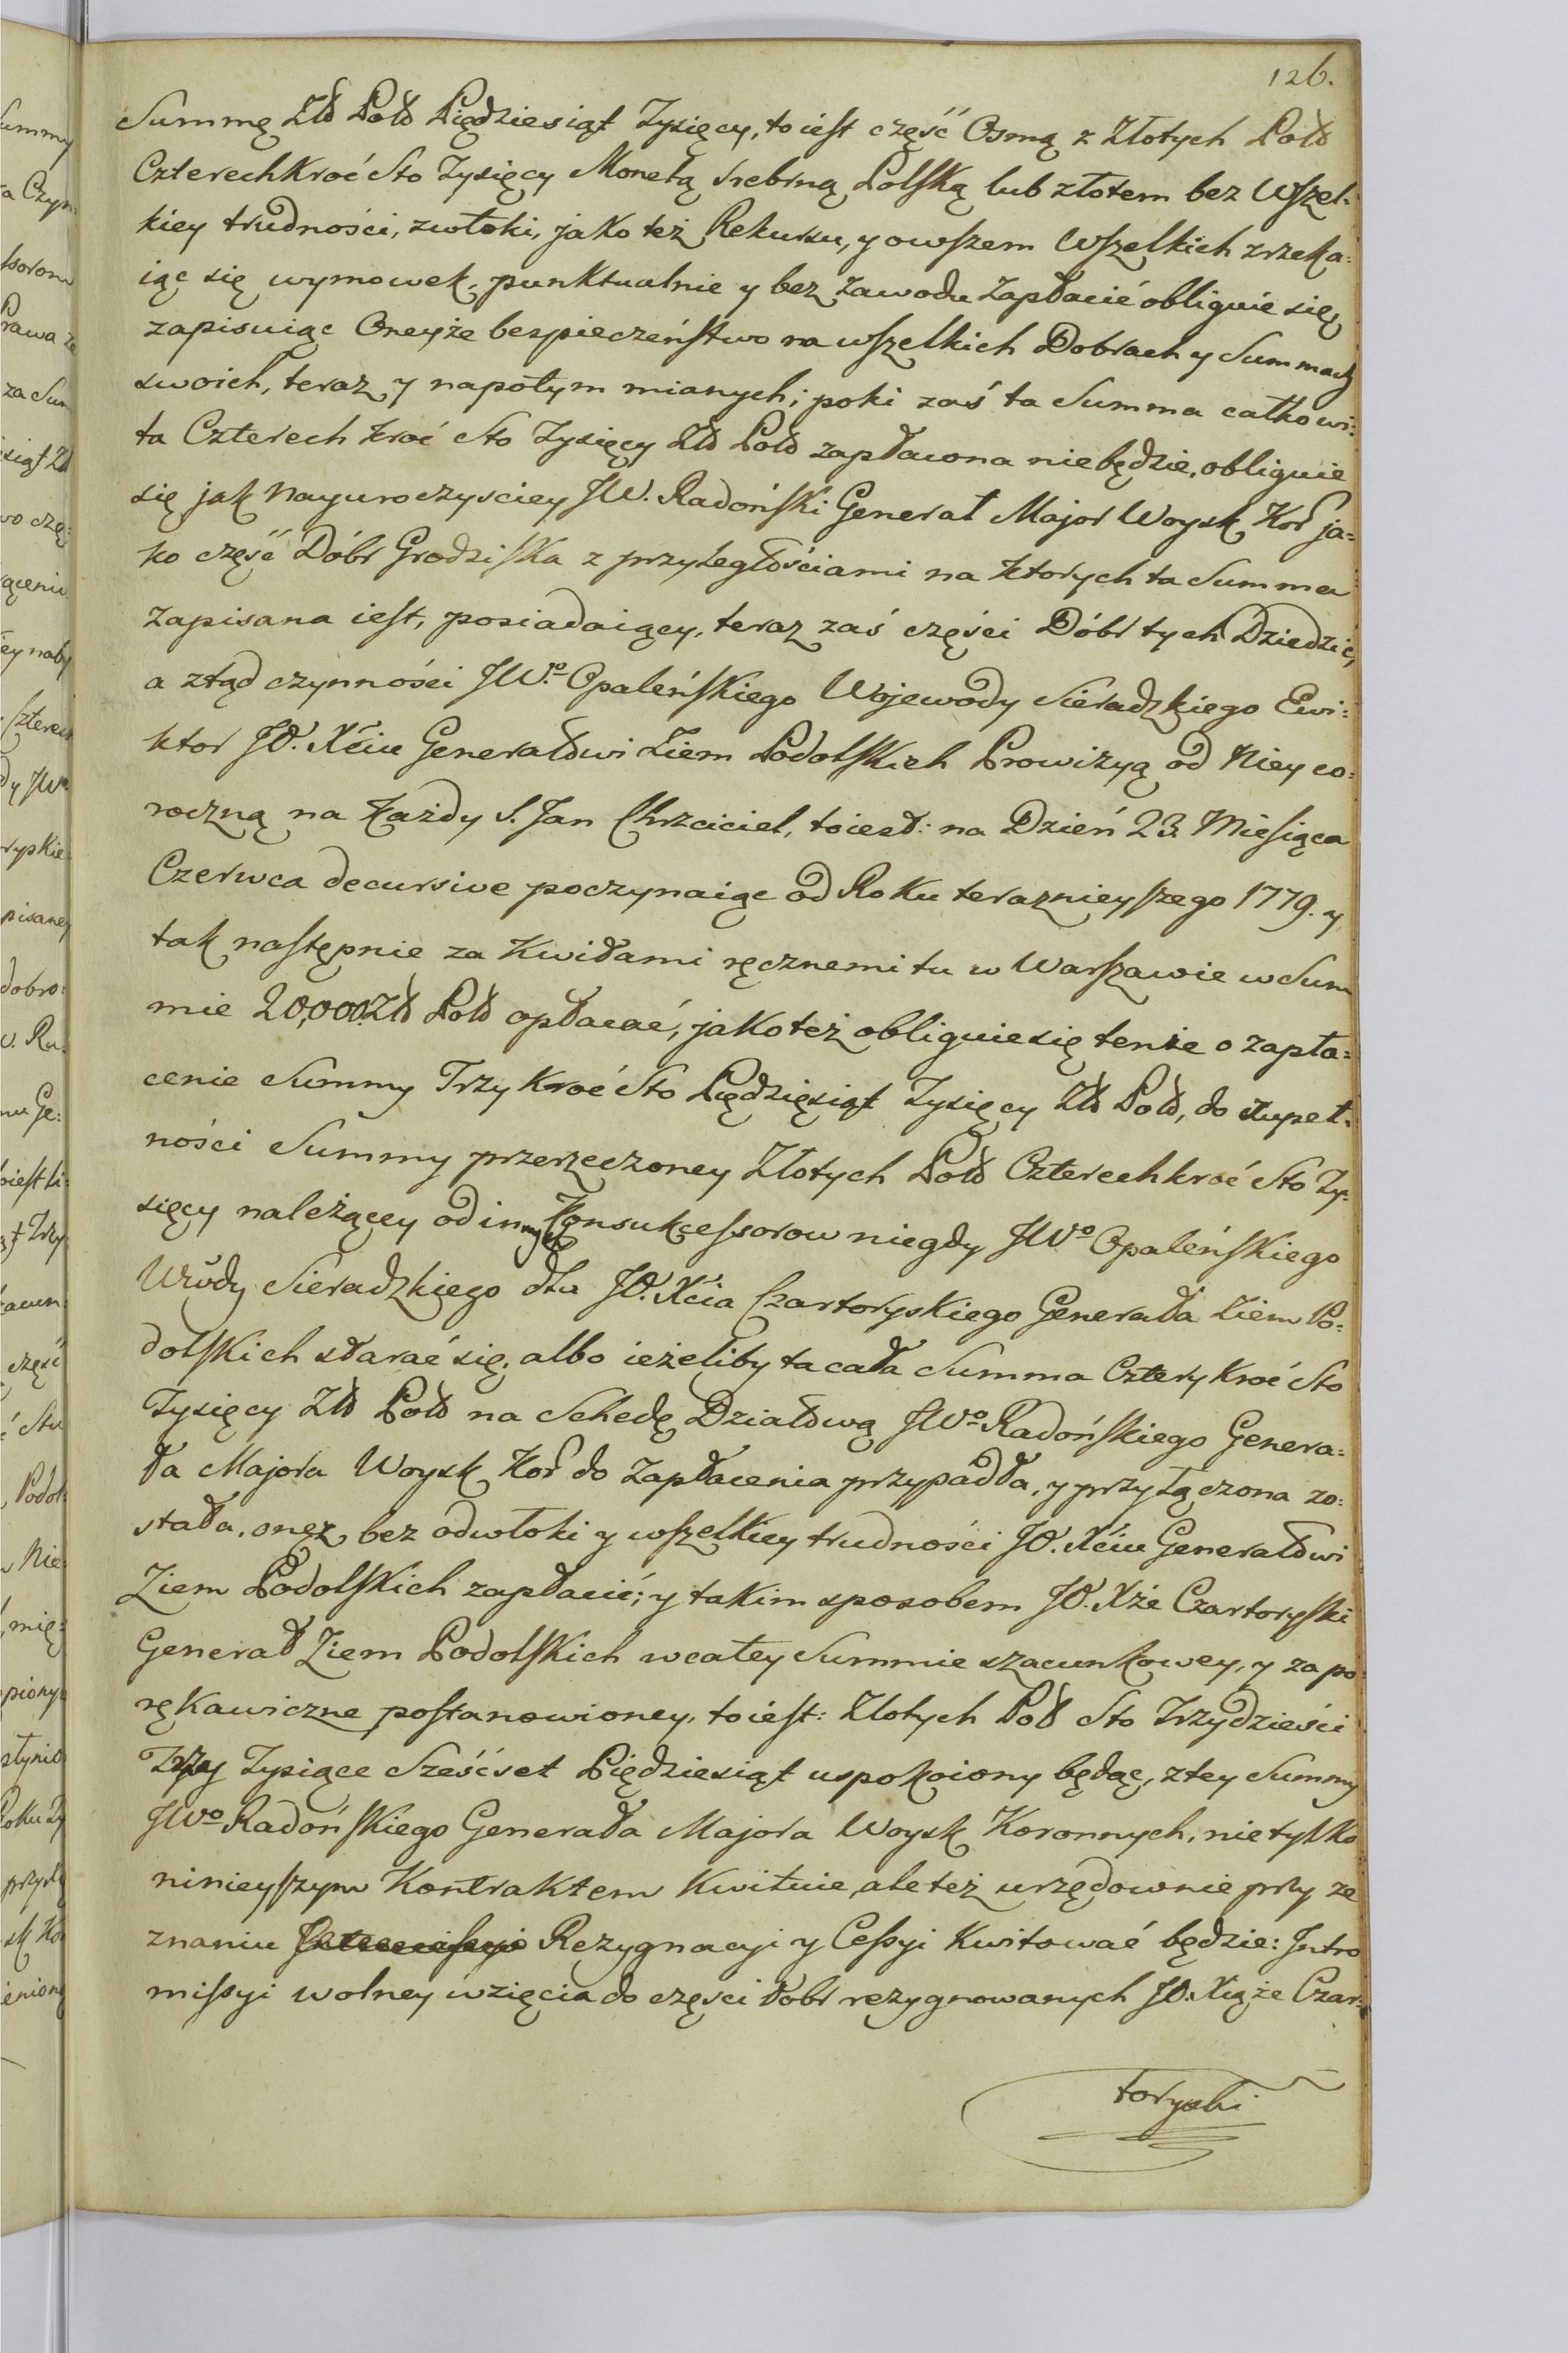 126.
Summę Złł Poll Pięćdziesiąt Tysięcy, to iest część Osmą z Złotych Poll
Czterechkroć Sto Tysięcy Monetą srebrną Polską lub złotem bez Wszel-
kiey trudności, zwłoki, jako też Rekursu, y owszem Wszelkich zrzeka=
iąc się wymowek, punktualnie y bez zawodu zapłacić obliguie się,
zapisuiąc Oneyże bespieczeństwo na wszelkich Dobrach y Summach
swoich, teraz y napotym mianych; poki zaś ta Summa całkowi=
ta Czterech kroć Sto Tysięcy Złł Poll zapłacona niebędzie, obliguie
się jak Nayuroczysciey JW. Radoński Generał Major Woysk Kor ja=
ko część Dóbr Grodziska z przyległościami na ktorych ta Summa
zapisana iest, posiadaiący, teraz zaś części Dóbr tych Dziedzic,
a ztąd czynności JWº Opaleńskiego Wojewody Sieradzkiego Ewi=
ktor JO. Xciu Generałowi Ziem Podolskich Prowizyą od Niey co=
roczną na Każdy S. Jan Chrzciciel, to iest: na Dzień 23. Miesiąca
Czerwca decursive poczynaiąc od Roku teraznieyszego 1779. y
tak następnie za Kwitami ręcznemi tu w Warszawie w Sum
mie 20,000. Złł Poll opłacać, jako też obliguie się tenże o zapła=
cenie Summy Trzykroć Sto Pięćdzięsiąt Tysięcy Złł Poll, do zupeł-
ności Summy przerzeczoney Złotych Poll Czterechkroć Sto Ty-
sięcy należącey od innych Konsukcessorow niegdy JWº Opaleńskiego
Wwdy Sieradzkiego dla JO. Xcia Czartoryskiego Generała Ziem Po=
dolskich starać się, albo ieżeliby ta cała Summa Czterykroć Sto
Tysięcy Złł Poll na Schedę Działową JWº Radońskiego Genera=
ła Majora Woysk Kor do zapłacenia przypadła, y przyłączona zo=
stała, onęz bez odwłoki y wszelkiey trudności JO. Xciu Generałowi
Ziem Podolskich zapłacić; y takim sposobem JO. Xże Czartoryski
Generał Ziem Podolskich w całey Summie szacunkowey, y za po=
rękawiczne postanowioney, to iest: Złotych Poll Sto Trzydzieści
Trzy Tysiące Sześćset Pięćdziesiąt uspokoiony będąc, z tey Summy
JWº Radońskiego Generała Majora Woysk Koronnych, nietylko
ninieyszym Kontraktem Kwituie, ale też urzędownie przy ze
znaniu Rezygnacyi y Cessyi Kwitować będzie: Intro
missyi wolney wzięcia do częsci Dobr rezygnowanych JO. Xiąże Czar=
toryski